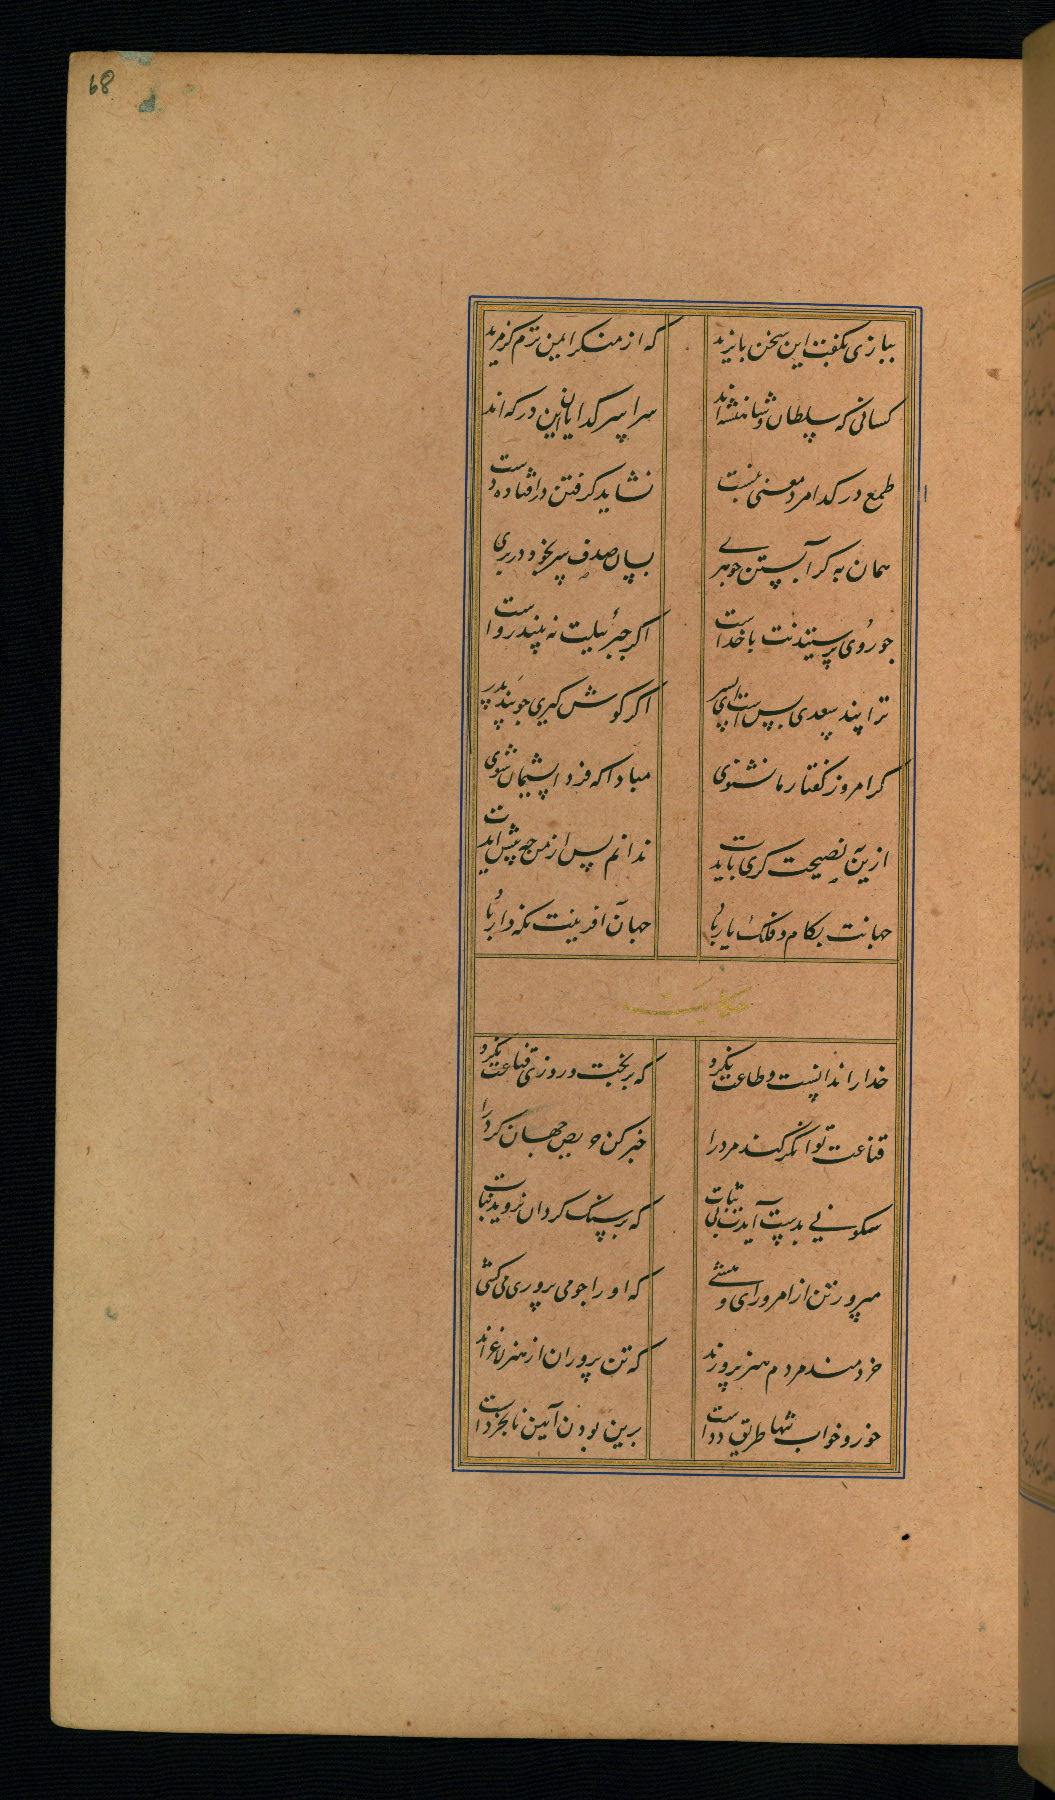 68
ببازی نگفت این سخن بایزید که از منکر ایمن ترم کز مرید
کسانی که سلطان و شاهنشه اند سراسر گدایان این درگه اند
طمع در گدا مرد معنی نبست نشاید گرفتن در افتاده دست
همان به گر آبستن جوهری بسان صدف سر بخود در بری
جو روی پرستیدنت با خداست اگر جبرئیلت نه بیند رواست
ترا پند سعدی بس است ای پسر اگر گوش گیری جو پند پدر
گر امروز گفتار ما نشنوی مبادا که فردا پشیمان شوی
ازین به نصیحت گری بایدت ندانم پس از من جه پیش آیدت
جهانت بکام و فلک یار باد جهان آفرینت نگه دار باد
حکایت
خدا را ندانست و طاعت نکرد که بر بخت و روزی قناعت نکرد
قناعت توانگر کند مرد را خبر کن حریص جهان گرد را
سکونی بدست آید بی ثبات که بر سنگ گردان نروید نبات
مپرور تن ار مرد رای و هشی که او را جو می پروری می کشی
خردمند مردم هنر پرورند که تن پروران از هنر لاغرند
خور و خواب تنها طریق ددست برین بودن آیین نابخردست